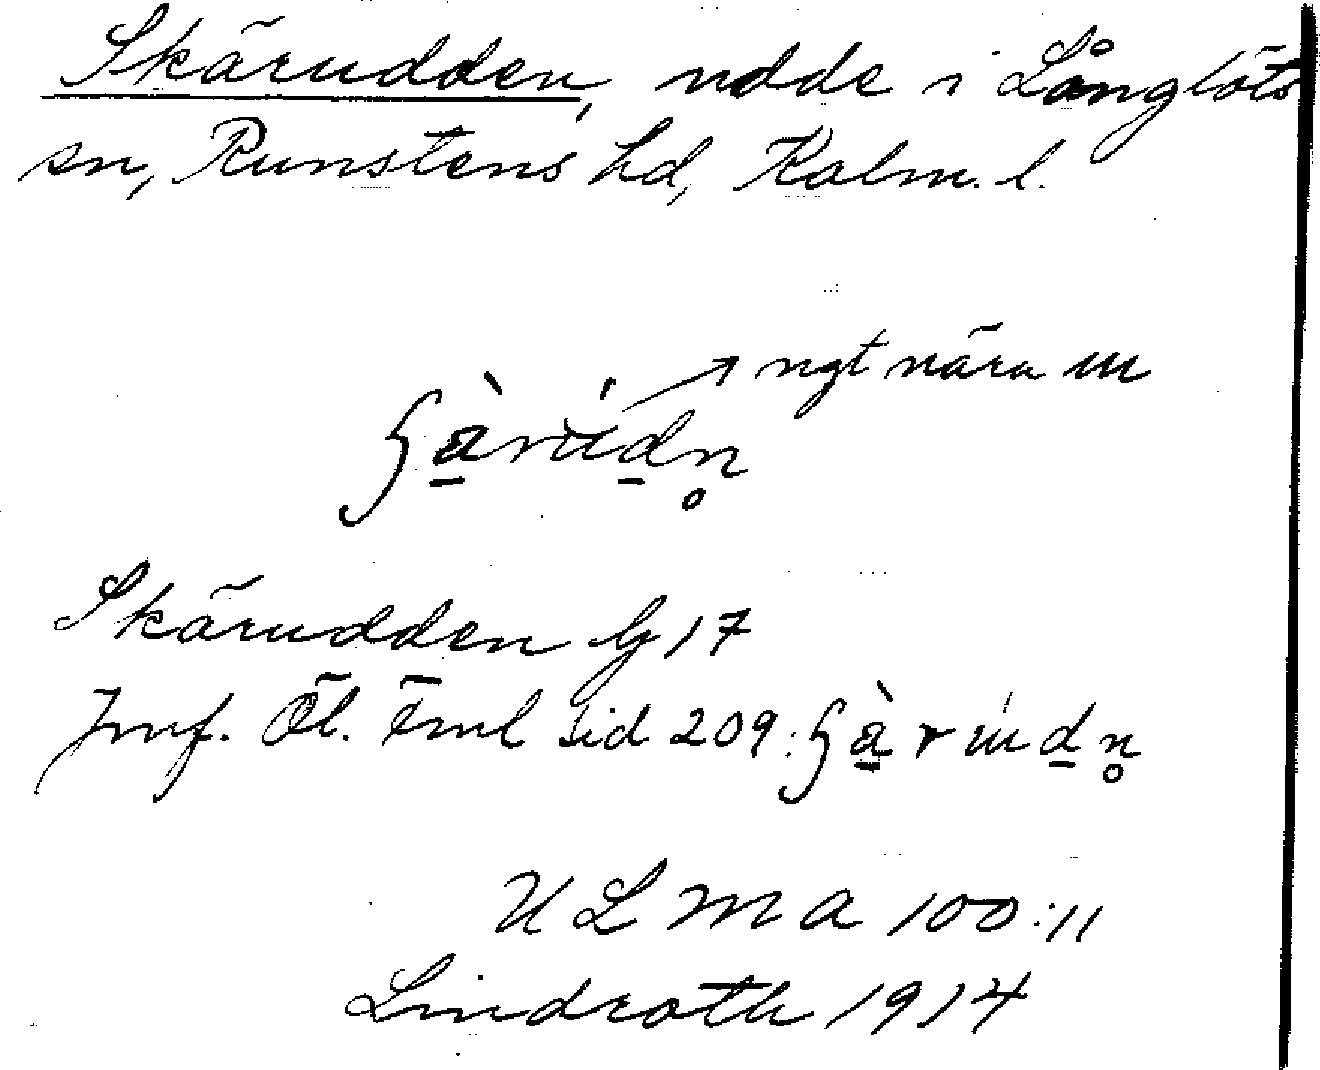 Skärudden, udde i Långlöts
sn, Runstens hd, Kalm. l.
ngt nära ɯ
Skärudden G 17
Jmf. Öl. Fml sid 209:
ULMA 100:11
Lindroth 1914